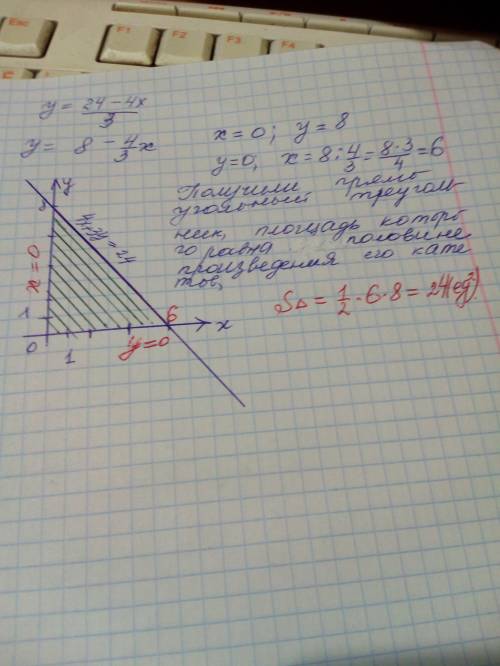 Esc
F1
F2
F3
F4
y = \frac{24-4x}{3}
y = 8 - \frac{4}{3}x
x=0; y=8
y=0, x=8:\frac{4}{3}=\frac{8·3}{4}=6
Получили прямо
угольный треуголь
ник, площадь которо
го равна половине
произведения его кате
тов,
S△ = \frac{1}{2}·6·8 = 24(ед²)
y
8
4x+3y=24
x=0
1
0
1
y=0
6
x